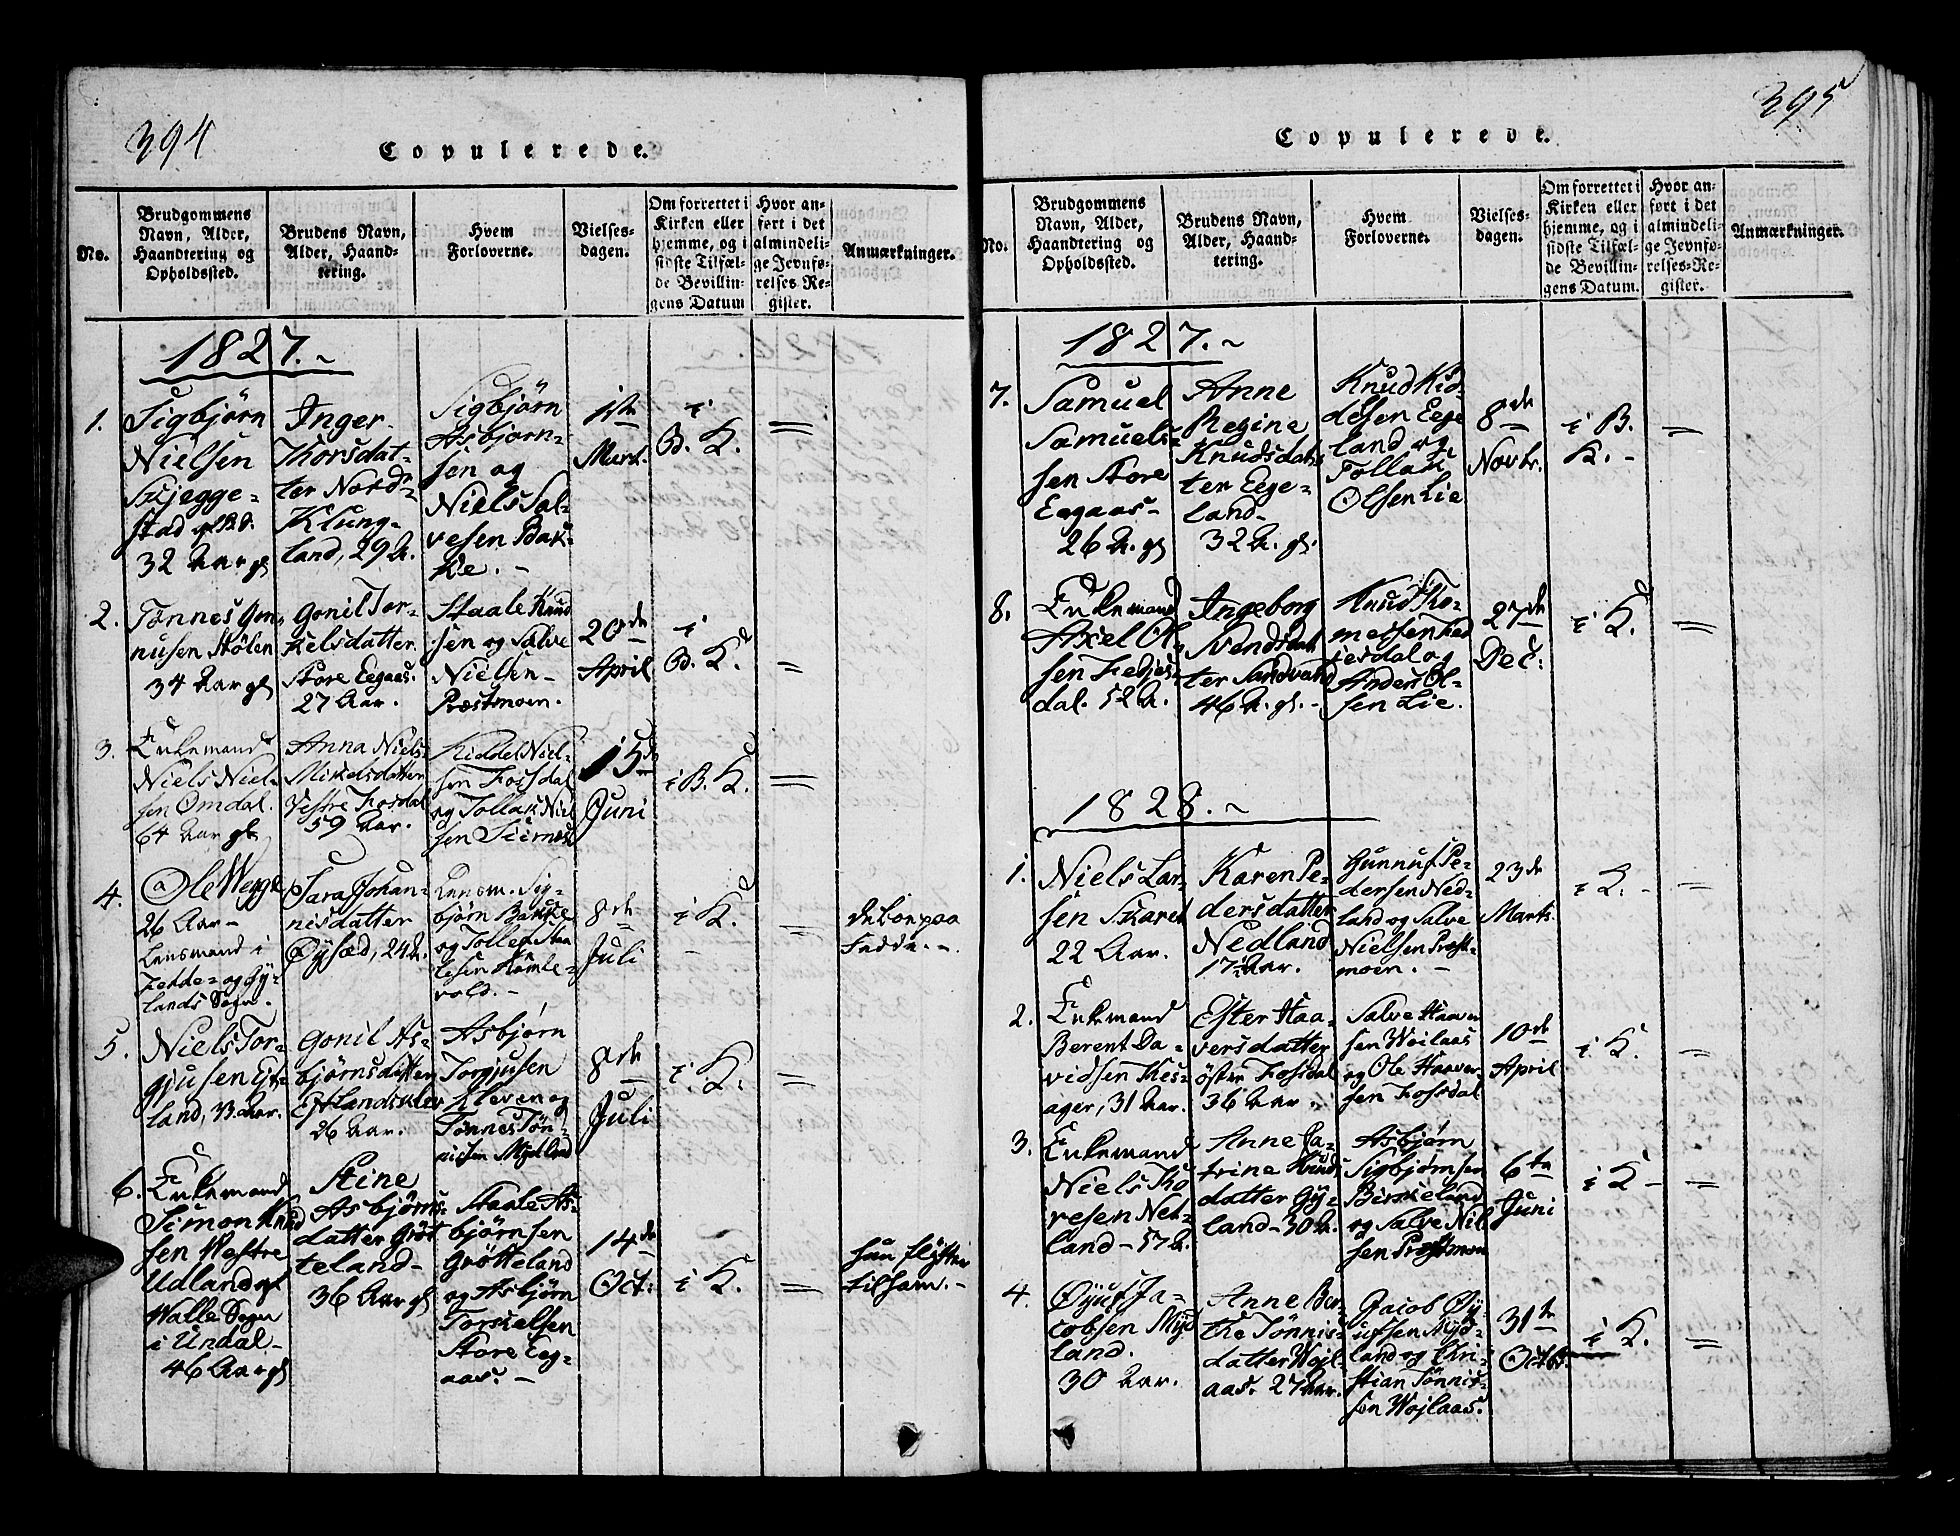 394
Copulerede.
No.
Brudgommens
Navn, Alder,
Haandtering og
Opholdssted.
Brudens Navn,
Alder, Haand-
tering.
Hvem
Forloverne.
Vielses-
dagen.
Om forrettet i
Kirken eller
hjemme, og i
sidste Tilfæl-
de Bevillin-
gens Datum
Hvor an-
ført i det
almindeli-
ge Jevnfø-
relses-Re-
gister.
Anmærkninger.
1827.~
1.
Sigbjørn
Nielsen
Skjegge-
stad
32 Aar gl
Inger
Thorsdat-
ter Nordr-
Klung-
land, 29 A.
Sigbjørn
Asbjørn-
sen og
Niels Sal-
vesen Bak-
ke. -
1ste
Mart.
i
B. K.
=
2.
Tønnes Gun-
nusen Stølen
34 Aar gl
Gonil Tor-
kelsdatter
Store Eegaas.
27 Aar.
Staale Knud
sen og Salve
Nielsen
Præstmoen.
20de
April
i
B. K.
=
3.
Enkemand
Niels Niel-
sen Omdal.
64 Aar gl.
Anna Niels-
Mikelsdatter
Vestre Fosdal
59 Aar.
Kiddel Niel-
sen Fosdal
og Tollak Niel
sen Stiernes
15de
Juni
i B. K.
=
4.
Ole Wegge
26 Aar -
Lensmand i
Fedde- og Gy-
lands Sogn.
Sara Johan-
nisdatter
Øysæd, 24 A.
Lensm. Sig-
bjørn Bakke
og Tollef Staa
lesen Romle-
vold. -
8de
Juli
i K.
-
de boe paa
Fedde. -
5.
Niels Tor-
gjusen Ejt-
land, 33 Aar.
Gonil As-
bjørnsdatter
Ejtlandsklev
26 Aar.
Asbjørn
Torgjusen
Kleven og
Tønnes Tøn-
nisen Mydland
8de
Juli
i. K.
=
6.
Enkemand
Simon Knud
sen Westre
Udland gl
Walle Sogn
i Undal -
46 Aar gl
Stine
Asbjørns-
datter Grøt
teland -
36 Aar gl
Staale As-
bjørnsen
Grøtteland
og Asbjørn
Torkelsen
Store Eeg-
aas. -
14de
Oct:
i K.
=
hun flytter
til ham. -
395
Copulerede.
No.
Brudgommens
Navn, Alder,
Haandtering og
Opholdssted.
Brudens Navn,
Alder, Haand-
tering.
Hvem
Forloverne.
Vielses-
dagen.
Om forrettet i
Kirken eller
hjemme, og i
sidste Tilfæl-
de Bevillin-
gens Datum.
Hvor an-
ført i det
almindeli-
ge Jevnfø-
relses-Re-
gister.
Anmærkninger.
1827.~
7.
Samuel
Samuels-
sen Store
Eegaas -
26 A. gl
Anne
Regine
Knudsdat-
ter Eege-
land -
32 A. gl.
Knud Kid-
delsen Eege
land og
Tollak
Olsen Lie
8de
Novbr.
i B.
K. -
=
8.
Enkemand
Axel Ol-
sen Fedjes-
dal. 52 A.
Ingeborg
Svendsdat
ter Sandvand
46 A. gl. -
Knud Tho-
mesen Fed
jesdal og
Anders Ol-
sen Lie.
27de
Dec:
i K.
=
1828.~
1.
Niels Lar-
sen Skaret
22 Aar.
Karen Pe-
dersdatter
Nedland
17 Aar.
Gunnuf Pe-
dersen Ned-
land og Salve
Nielsen Præst-
moen. -
23de
Marts.
i K. -
=
2.
Enkemand
Berent Da-
vidsen Kes-
ager, 31 Aar.
Ester Haa-
versdatter
öster Fosdal
36 Aar.
Salve Haaver
sen Wøilaas
og Ole Haaver
sen Fossdal
10de
April
i K.
=
3.
Enkemand
Niels To
resen Net-
land - 57 A.
Anne Ca-
trine Knuds
datter Gy-
land - 30 A.
Asbjørn
Sigbjørnsen
Birkeland
og Salve Niel
sen Præstmoen
6te
Juni
i K -
=
4.
Øyuf Ja-
cobsen Myd
land.
30 Aar.
Anne Ber-
the Tønnis-
datter Wøjl-
aas. 27 Aar.
Jacob Øy-
ufsen Myd-
land og Chri-
stian Tønnis-
sen Wøjlaas.
31te
Octbr.
i K.
=